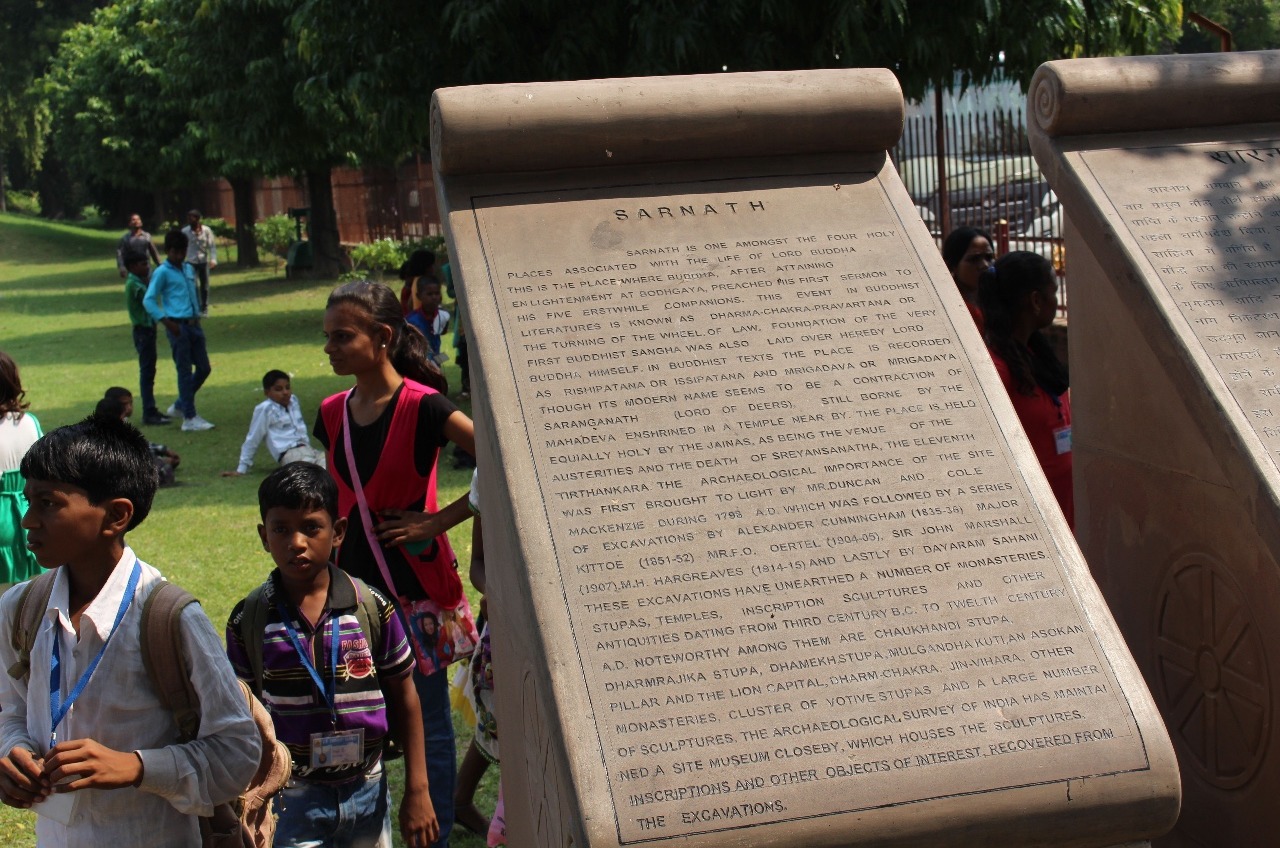 SARNATH
SARNATH IS ONE AMONGST THE FOUR HOLY
PLACES ASSOCIATED WITH THE LIFE OF LORD BUDDHA
THIS IS THE PLACE WHERE BUDDHA, AFTER ATTAINING
ENLIGHTENMENT AT BODHGAYA, PREACHED HIS FIRST SERMON TO
HIS FIVE ERSTWHILE COMPANIONS. THIS EVENT IN BUDDHIST
LITERATURES IS KNOWN AS DHARMA-CHAKRA-PRAVARTANA OR
THE TURNING OF THE WHEEL OF LAW. FOUNDATION OF THE VERY
FIRST BUDDHIST SANGHA WAS ALSO LAID OVER HEREBY LORD
BUDDHA HIMSELF. IN BUDDHIST TEXTS THE PLACE IS RECORDED
AS RISHIPATANA OR ISSIPATANA AND MRIGADAVA OR MRIGADAYA
THOUGH ITS MODERN NAME SEEMS TO BE A CONTRACTION OF
SARANGANATH (LORD OF DEERS), STILL BORNE BY THE
MAHADEVA ENSHRINED IN A TEMPLE NEAR BY. THE PLACE IS HELD
EQUIALLY HOLY BY THE JAINAS, AS BEING THE VENUE OF THE
AUSTERITIES AND THE DEATH OF SREYANSANATHA, THE ELEVENTH
TIRTHANKARA. THE ARCHAEOLOGICAL IMPORTANCE OF THE SITE
WAS FIRST BROUGHT TO LIGHT BY MR.DUNCAN AND COLE
MACKENZIE DURING 1798 A.D. WHICH WAS FOLLOWED BY A SERIES
OF EXCAVATIONS BY ALEXANDER CUNNINGHAM (1835-36) MAJOR
KITTOE (1851-52) MR.F.O. OERTEL (1904-05), SIR JOHN MARSHALL
(1907), M.H. HARGREAVES (1914-15) AND LASTLY BY DAYARAM SAHANI.
THESE EXCAVATIONS HAVE UNEARTHED A NUMBER OF MONASTERIES,
STUPAS, TEMPLES, INSCRIPTION SCULPTURES AND OTHER
ANTIQUITIES DATING FROM THIRD CENTURY B.C. TO TWELTH CENTURY
A.D. NOTEWORTHY AMONG THEM ARE CHAUKHANDI STUPA,
DHARMRAJIKA STUPA, DHAMEKH STUPA, MULGANDHA KUTI, AN ASOKAN
PILLAR AND THE LION CAPITAL, DHARM-CHAKRA, JIN-VIHARA, OTHER
MONASTERIES, CLUSTER OF VOTIVE STUPAS AND A LARGE NUMBER
OF SCULPTURES. THE ARCHAEOLOGICAL SURVEY OF INDIA HAS MAINTAI
NED A SITE MUSEUM CLOSEBY, WHICH HOUSES THE SCULPTURES,
INSCRIPTIONS AND OTHER OBJECTS OF INTEREST, RECOVERED FROM
THE EXCAVATIONS.